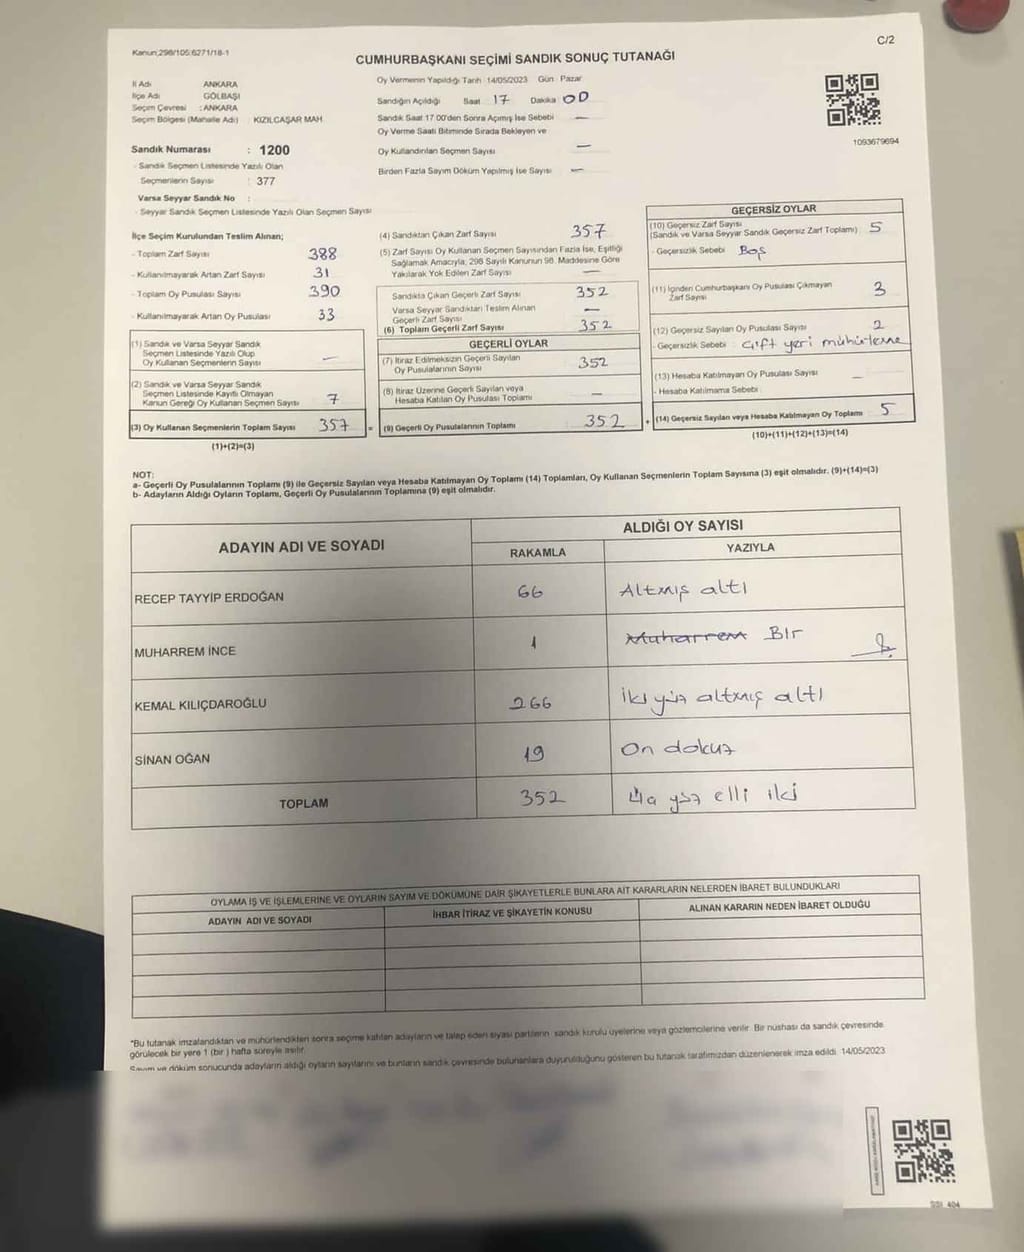 Kanun;298/105;6271/18-1
C/2
CUMHURBAŞKANI SEÇİMİ SANDIK SONUÇ TUTANAĞI
İl Adı ANKARA
İlçe Adı GÖLBAŞI
Seçim Çevresi : ANKARA
Seçim Bölgesi (Mahalle Adı) KIZILCAŞAR MAH.
Sandık Numarası : 1200
- Sandık Seçmen Listesinde Yazılı Olan
Seçmenlerin Sayısı : 377
Varsa Seyyar Sandık No :
- Seyyar Sandık Seçmen Listesinde Yazılı Olan Seçmen Sayısı
Oy Vermenin Yapıldığı Tarih 14/05/2023 Gün Pazar
Sandığın Açıldığı Saat 17 Dakika 00
Sandık Saat 17 00'den Sonra Açımış İse Sebebi —
Oy Verme Saati Bitiminde Sırada Bekleyen ve
Oy Kullandırılan Seçmen Sayısı —
Birden Fazla Sayım Döküm Yapılmış İse Sayısı —
1093679694
İlçe Seçim Kurulundan Teslim Alınan;
- Toplam Zarf Sayısı 388
- Kullanılmayarak Artan Zarf Sayısı 31
- Toplam Oy Pusulası Sayısı 390
- Kullanılmayarak Artan Oy Pusulası 33
(1) Sandık ve Varsa Seyyar Sandık
Seçmen Listesinde Yazılı Olup
Oy Kullanan Seçmenlerin Sayısı —
(2) Sandık ve Varsa Seyyar Sandık
Seçmen Listesinde Kayıtlı Olmayan
Kanun Gereği Oy Kullanan Seçmen Sayısı 7
(3) Oy Kullanan Seçmenlerin Toplam Sayısı 357 =
(1)+(2)=(3)
(4) Sandıktan Çıkan Zarf Sayısı 357
(5) Zarf Sayısı Oy Kullanan Seçmen Sayısından Fazla İse, Eşitliği
Sağlamak Amacıyla, 298 Sayılı Kanunun 98. Maddesine Göre
Yakılarak Yok Edilen Zarf Sayısı —
Sandıkta Çıkan Geçerli Zarf Sayısı 352
Varsa Seyyar Sandıktan Teslim Alınan
Geçerli Zarf Sayısı —
(6) Toplam Geçerli Zarf Sayısı 352
GEÇERLİ OYLAR
(7) İtiraz Edilmeksizin Geçerli Sayılan
Oy Pusulalarının Sayısı 352
(8) İtiraz Üzerine Geçerli Sayılan veya
Hesaba Katılan Oy Pusulası Toplamı —
(9) Geçerli Oy Pusulalarının Toplamı 352 +
GEÇERSİZ OYLAR
(10) Geçersiz Zarf Sayısı
(Sandık ve Varsa Seyyar Sandık Geçersiz Zarf Toplamı) 5
- Geçersizlik Sebebi Boş
(11) İçinden Cumhurbaşkanı Oy Pusulası Çıkmayan
Zarf Sayısı 3
(12) Geçersiz Sayılan Oy Pusulası Sayısı 2
- Geçersizlik Sebebi Çift yeri mühürleme
(13) Hesaba Katılmayan Oy Pusulası Sayısı —
- Hesaba Katılmama Sebebi
(14) Geçersiz Sayılan veya Hesaba Katılmayan Oy Toplamı 5
(10)+(11)+(12)+(13)=(14)
NOT:
a- Geçerli Oy Pusulalarının Toplamı (9) ile Geçersiz Sayılan veya Hesaba Katılmayan Oy Toplamı (14) Toplamları, Oy Kullanan Seçmenlerin Toplam Sayısına (3) eşit olmalıdır. (9)+(14)=(3)
b- Adayların Aldığı Oyların Toplamı, Geçerli Oy Pusulalarının Toplamına (9) eşit olmalıdır.
ADAYIN ADI VE SOYADI
ALDIĞI OY SAYISI
RAKAMLA YAZIYLA
RECEP TAYYİP ERDOĞAN 66 Altmış altı
MUHARREM İNCE 1 Muharrem Bir
KEMAL KILIÇDAROĞLU 266 iki yüz altmış altı
SİNAN OĞAN 19 On dokuz
TOPLAM 352 yüz elli iki
OYLAMA İŞ VE İŞLEMLERİNE VE OYLARIN SAYIM VE DÖKÜMÜNE DAİR ŞİKAYETLERLE BUNLARA AİT KARARLARIN NELERDEN İBARET BULUNDUKLARI
ADAYIN ADI VE SOYADI İHBAR İTİRAZ VE ŞİKAYETİN KONUSU ALINAN KARARIN NEDEN İBARET OLDUĞU
*Bu tutanak imzalandıktan ve mühürlendikten sonra seçime katılan adayların ve talep eden siyasi partilerin sandık kurulu üyelerine veya gözlemcilerine verilir. Bir nüshası da sandık çevresinde
görülecek bir yere 1 (bir) hafta süreyle asılır.
Sayım ve döküm sonucunda adayların aldığı oyların sayılarını ve bunların sandık çevresinde bulunanlara duyurulduğunu gösteren bu tutanak tarafımızdan düzenlenerek imza edildi 14/05/2023